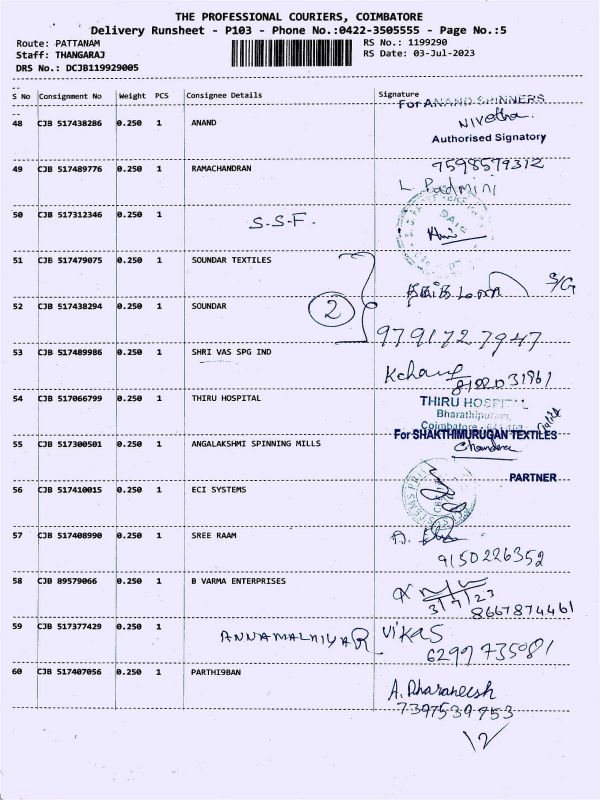 THE PROFESSIONAL COURIERS, COIMBATORE
Delivery Runsheet - P103 - Phone No.:0422-3505555 - Page No.:5
Route: PATTANAM RS No.: 1199290
Staff: THANGARAJ RS Date: 03-Jul-2023
DRS No.: DCJB119929005
S No Consignment No Weight PCS Consignee Details Signature
For ANAND SPINNERS
48 CJB 517438286 0.250 1 ANAND Nivetha.
Authorised Signatory
7598579312
49 CJB 517489776 0.250 1 RAMACHANDRAN L. Padmini
50 CJB 517312346 0.250 1 S.S.F. DATE
51 CJB 517479075 0.250 1 SOUNDAR TEXTILES S/G
52 CJB 517438294 0.250 1 SOUNDAR 2
9791727947
53 CJB 517489986 0.250 1 SHRI VAS SPG IND
54 CJB 517066799 0.250 1 THIRU HOSPITAL THIRU HOSPITAL
Bharathipuram,
Coimbatore
For SHAKTHIMURUGAN TEXTILES
55 CJB 517300501 0.250 1 ANGALAKSHMI SPINNING MILLS Chandra
PARTNER
56 CJB 517410015 0.250 1 ECI SYSTEMS
57 CJB 517408990 0.250 1 SREE RAAM
9150226352
58 CJB 89579066 0.250 1 B VARMA ENTERPRISES
3/7/23
8667874461
59 CJB 517377429 0.250 1 ANNAMALAIYAR VIKAS
6299735081
60 CJB 517407056 0.250 1 PARTHI9BAN A. Dharaneesh
7397539753
12